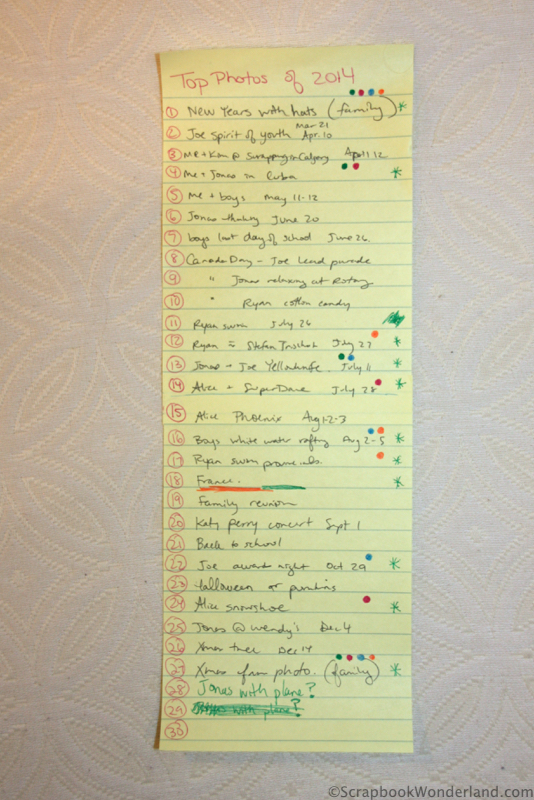 Top Photos of 2014
1 New Years with hats (family) *
2 Joe spirit of youth Mar 21 Apr. 10
3 Me + Kim @ Scrapping in Calgary April 12
4 Me + Jonas in Cuba *
5 Me + boys May 11-12
6 Jonas thinking June 20
7 boys last day of school June 26
8 Canada Day - Joe Lead parade
9 " Jonas relaxing at Rotary
10 " Ryan cotton candy
11 Ryan swim July 26
12 Ryan Stefan July 27 *
13 Jonas + Joe Yellowknife July 11 *
14 Alice + SuperDave July 28 *
15 Alice Phoenix Aug 1-2-3
16 Boys white water rafting Aug 2-5 *
17 Ryan swim provincials. *
18 France. *
19 Family reunion
20 Katy Perry concert Sept 1
21 Back to school
22 Joe award night Oct 29 *
23 Halloween or pumpkins
24 Alice snowshoe *
25 Jonas @ Wendy's Dec 4
26 Xmas tree Dec 14
27 Xmas fam photo. (family) *
28 Jonas with plane?
29 with plane?
30
©ScrapbookWonderland.com